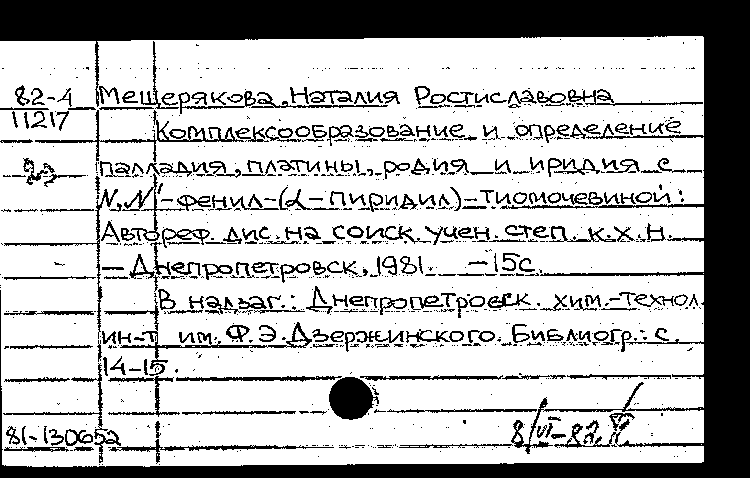 82-4 Мещерякова, Наталия Ростиславовна
11217 Комплексообразование и определение
палладия, платины, родия и иридия с
N,N'-фенил-(α-пиридил)-тиомочевиной:
Автореф. дис. на соиск. учен. степ. к.х.н.
— Днепропетровск, 1981. —15с.
В надзаг.: Днепропетровск. хим.-технол.
ин-т им. Ф.Э.Дзержинского. Библиогр.: с.
14-15.
81-130652 8/VI-82.